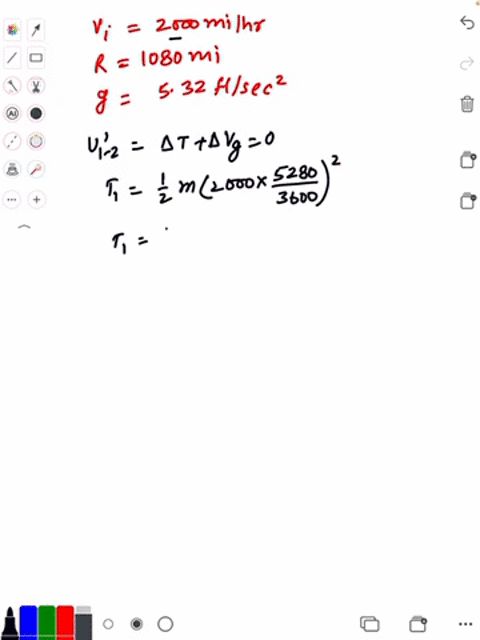 Vi = 2000 mi/hr
R = 1080 mi
g = 5.32 ft/sec²
U'1-2 = ΔT + ΔVg = 0
T1 = 1/2 m (2000 × 5280/3600)²
T1 =